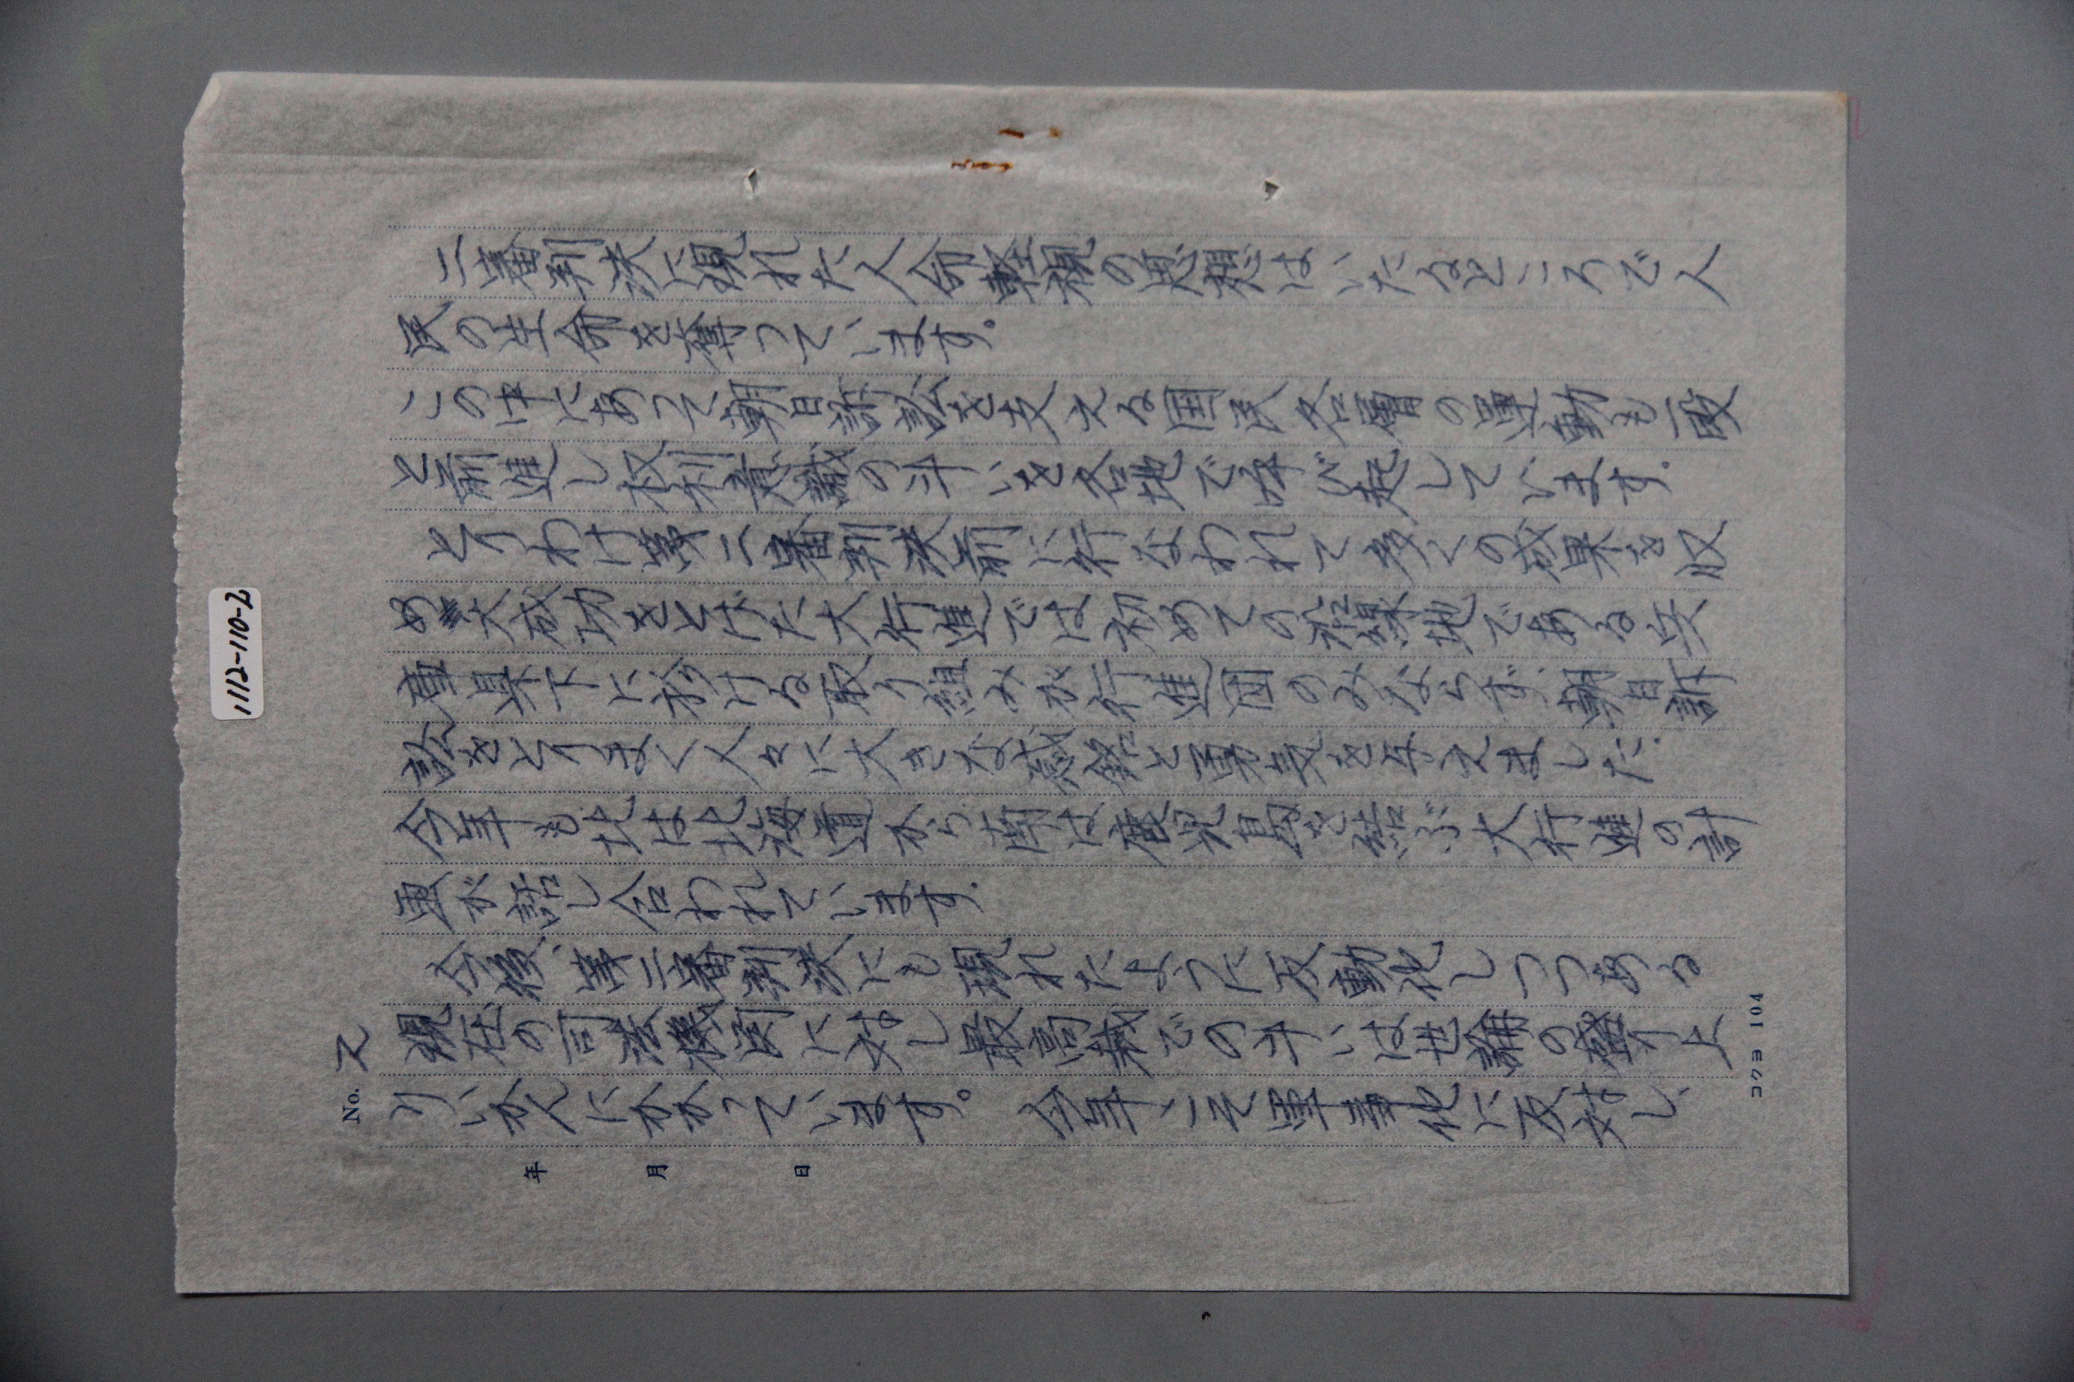 二審判決に現れた人命軽視の思想はいたるところで人
民の生命を奪っています。
この中にあって朝日訴訟を支える国民各層の運動も一段
と前進し权利意識の斗いを各地で呼び起しています.
とりわけ第二審判決前に行なわれて多くの成果を収
め大成功をとげた大行進では初めての 地である兵
庫県下に於ける取り組みが行進団のみならず、朝日訴
訟をとりまく人々に大きな感銘と勇気を与えました.
今年も北は北海道から南は鹿児島を結ぶ大行進の計
画が話し合われています.
今後、第二審判決にも現れたように反動化しつつある
現在の司法機関に対し最高裁での斗いは世論の盛り上
りいかんにかかっています。今年こそ軍事化に反対し、
No. 2
年 月 日
コクヨ 104
112-110-2